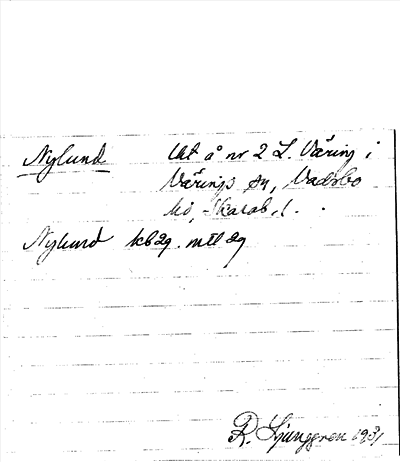 Nylund Ut å nr 2 L. Väring i
Värings sn, Vadsbo
hd, Skarab. l.
Nylund kb 29. mtl 29
R. Ljunggren 1931